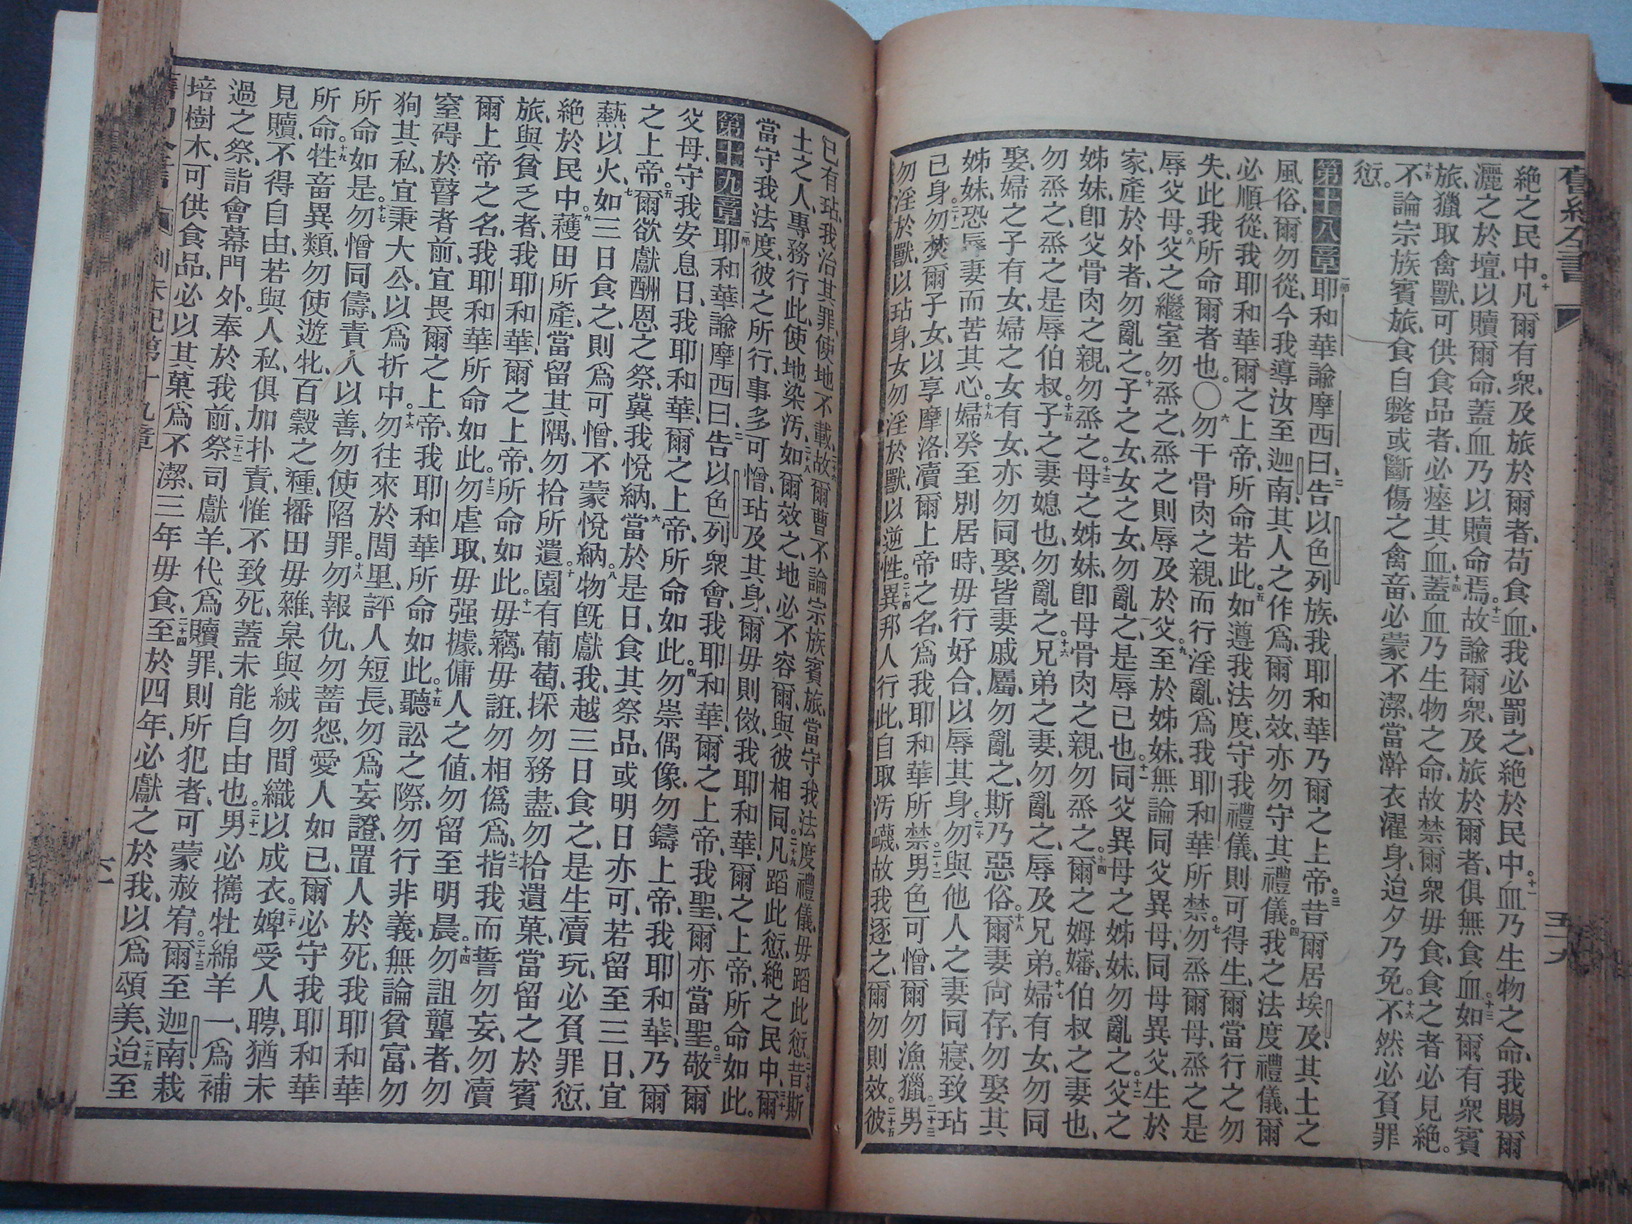 舊約全書
五十九
絶之民中、十凡爾有衆、及旅於爾者、苟食血、我必罰之、絶於民中、十一血乃生物之命、我賜爾
灑之於壇、以贖爾命、蓋血乃以贖命焉、十二故諭爾衆、及旅於爾者、俱無食血、十三如爾有衆賓
旅、獵取禽獸可供食品者、必瘞其血、十四蓋血乃生物之命、故禁爾衆毋食、食之者必見絶。
十五不論宗族賓旅、食自斃、或斷傷之禽畜、必蒙不潔、當澣衣濯身、迨夕乃免、十六不然必負罪
愆。
第十八章一節耶和華諭摩西曰、二告以色列族、我耶和華乃爾之上帝。三昔爾居埃及、其土之
風俗、爾勿從、今我導汝至迦南、其人之作爲、爾勿效、亦勿守其禮儀。四我之法度禮儀、爾
必順從、我耶和華爾之上帝、所命若此。五如遵我法度、守我禮儀、則可得生、爾當行之勿
失、此我所命爾者也。〇六勿干骨肉之親、而行淫亂、爲我耶和華所禁。七勿烝爾母、烝之是
辱父母。八父之繼室勿烝、烝之則辱及於父。九至於姊妹、無論同父異母、同母異父、生於
家、產於外者、勿亂之。十子之女、女之女、勿亂之、是辱己也。十一同父異母之姊妹、勿亂之。十二父之
姊妹、卽父骨肉之親、勿烝之。十三母之姊妹、卽母骨肉之親、勿烝之。十四爾之姆嬸、伯叔之妻也、
勿烝之、烝之是辱伯叔。十五子之妻媳也、勿亂之。十六兄弟之妻、勿亂之、辱及兄弟。十七婦有女、勿同
娶、婦之子有女、婦之女有女、亦勿同娶、皆妻戚屬、勿亂之、斯乃惡俗。十八爾妻尙存、勿娶其
姊妹、恐辱妻而苦其心。十九婦癸至別居時、毋行好合、以辱其身。二十勿與他人之妻同寢、致玷
己身。二十一勿焚爾子女、以享摩洛、瀆爾上帝之名、爲我耶和華所禁。二十二男色可憎、爾勿漁獵。二十三男
勿淫於獸、以玷身、女勿淫於獸、以逆性。二十四異邦人行此、自取汚衊、故我逐之、爾勿則效。二十五彼
已有玷、我治其罪、使地不載、二十六故爾曹不論宗族賓旅、當守我法度禮儀、毋蹈此愆、二十七昔斯
土之人、專務行此、使地染汚、二十八如爾效之、地必不容爾、與彼相同。二十九凡蹈此愆、絶之民中、三十爾
當守我法度、彼之所行、事多可憎、玷及其身、爾毋則傚、我耶和華、爾之上帝、所命如此。
第十九章一節耶和華諭摩西曰、二告以色列衆會、我耶和華、爾之上帝、我聖、爾亦當聖。三敬爾
父母、守我安息日、我耶和華、爾之上帝、所命如此。四勿崇偶像、勿鑄上帝、我耶和華、乃爾
之上帝。五爾欲獻酬恩之祭、冀我悅納、六當於是日、食其祭品、或明日亦可、若留至三日、宜
爇以火。七如三日食之、則爲可憎、不蒙悅納。八物旣獻我、越三日食之、是生瀆玩、必負罪愆、
絶於民中。九穫田所產、當留其隅、勿拾所遺。十園有葡萄、採勿務盡、勿拾遺菓、當留之於賓
旅、與貧乏者、我耶和華、爾之上帝、所命如此。十一毋竊、毋誑、勿相僞爲、十二指我而誓勿妄、勿瀆
爾上帝之名、我耶和華所命如此。十三勿虐取、毋强據、傭人之值、勿留至明晨。十四勿詛聾者、勿
窒碍於瞽者前、宜畏爾之上帝、我耶和華所命如此。十五聽訟之際、勿行非義、無論貧富、勿
狥其私、宜秉大公、以爲折中。十六勿往來於閭里、評人短長、勿爲妄證、置人於死、我耶和華
所命如是。十七勿憎同儔、責人以善、勿使陷罪。十八勿報仇、勿蓄怨、愛人如己、爾必守我耶和華
所命。十九牲畜異類、勿使遊牝、百穀之種、播田毋雜、枲與絨勿間織以成衣。二十婢受人聘、猶未
見贖、不得自由、若與人私、俱加扑責、惟不致死、蓋未能自由也。二十一男必攜牡綿羊一、爲補
過之祭、詣會幕門外、奉於我前、二十二祭司獻羊、代爲贖罪、則所犯者、可蒙赦宥。二十三爾至迦南、栽
培樹木、可供食品、必以其菓爲不潔、三年毋食、二十四至於四年、必獻之於我、以爲頌美、二十五迨至
第十九章
六十